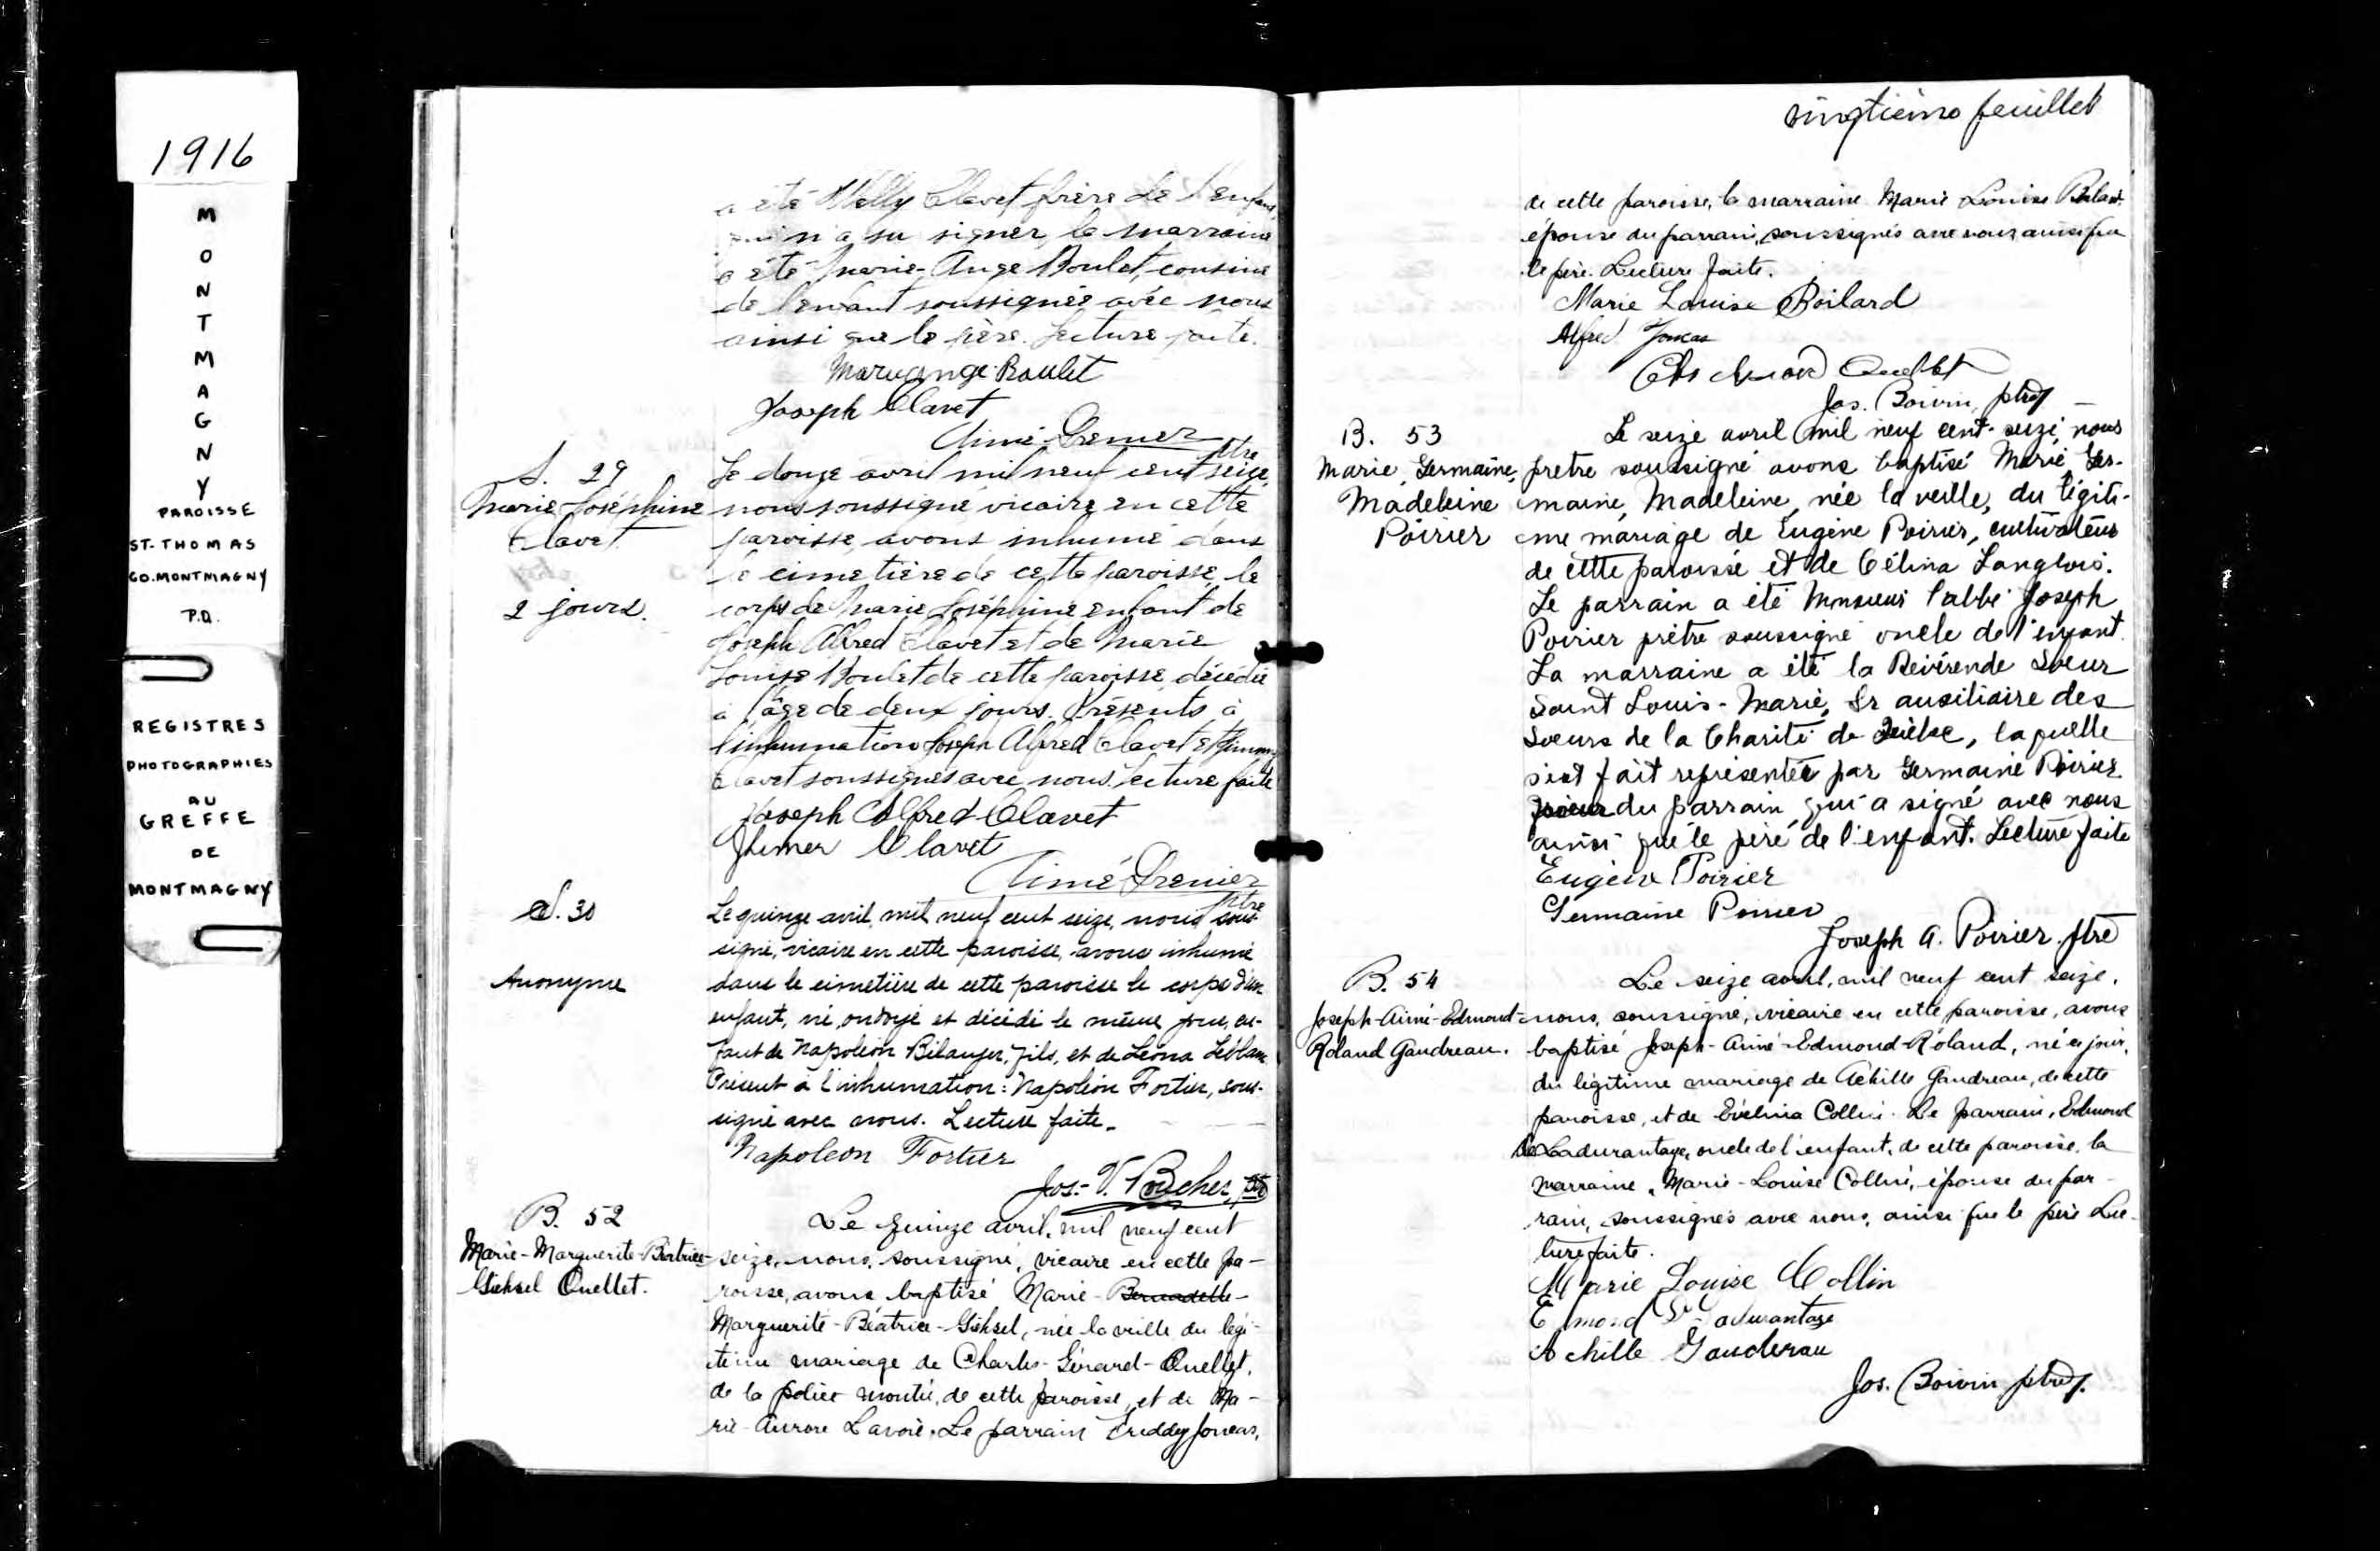 1916
MONTMAGNY
PAROISSE
ST-THOMAS
CO. MONTMAGNY
P.Q.
REGISTRES
PHOTOGRAPHIES
AU
GREFFE
DE
MONTMAGNY
a été Welly Clavet frère de l'enfant,
qui n'a su signer, la marraine
a été Marie-Ange Boulet, cousine
de l'enfant soussignée avec nous
ainsi que le père. Lecture faite.
Marieange Boulet
Joseph Clavet
Aimé Grenier ptre
S. 29
Marie Joséphine
Clavet.
2 jours.
Le douze avril mil neuf cent seize,
nous soussigné vicaire en cette
paroisse, avons inhumé dans
le cimetière de cette paroisse, le
corps de Marie Joséphine enfant de
Joseph Alfred Clavet et de Marie
Louise Boulet de cette paroisse, décédée
à l'âge de deux jours. Présents à
l'inhumation Joseph Alfred Clavet et
Clavet soussignés avec nous. Lecture faite
Joseph Alfred Clavet
Clavet
Aimé Grenier
ptre
S. 30
Anonyme
Le quinze avril, mil neuf cent seize, nous sous-
signé, vicaire en cette paroisse, avons inhumé
dans le cimetière de cette paroisse le corps d'un
enfant, né, ondoyé et décédé le même jour, en-
fant de Napoléon Bélanger, fils, et de Léona Leblanc.
Présent à l'inhumation: Napoléon Fortier, sous-
signé avec nous. Lecture faite.
Napoleon Fortier
Jos.-V. ptre
B. 52
Marie-Marguerite-Béatrice-
Ouellet.
Le quinze avril, mil neuf cent
seize, nous, soussigné, vicaire en cette pa-
roisse, avons baptisé Marie-Bernadette-
Marguerite-Béatrice- née la veille du légi-
time mariage de Charles-Gérard-Ouellet,
de la police montée, de cette paroisse, et de Ma-
rie-Aurore Lavoie. Le parrain Freddy Joncas,
vingtième feuillet
de cette paroisse, la marraine Marie Louise
épouse du parrain, soussignés avec nous, ainsi que
le père. Lecture faite.
Marie Louise Boilard
Alfred Joncas
Ouellet
Jos. Boivin, ptre
B. 53
Marie, Germaine,
Madeleine
Poirier
Le seize avril mil neuf cent-seize, nous
prêtre soussigné avons baptisé Marie, Ger-
maine, Madeleine, née la veille, du légiti-
me mariage de Eugène Poirier, cultivateur
de cette paroisse et de Célina Langlois.
Le parrain a été Monsieur l'abbé Joseph
Poirier prêtre soussigné oncle de l'enfant.
La marraine a été la Révérende Soeur
Saint Louis-Marie, Sr auxiliaire des
Soeurs de la Charité de Québec, laquelle
s'est fait représenter par Germaine Poirier
soeur du parrain, qui a signé avec nous
ainsi que le père de l'enfant. Lecture faite
Eugène Poirier
Germaine Poirier
Joseph A. Poirier ptre
B. 54
Joseph-Aimé-Edmond-
Roland Gaudreau.
Le seize avril, mil neuf cent seize,
nous, soussigné, vicaire en cette paroisse, avons
baptisé Joseph-Aimé-Edmond-Roland, né ce jour,
du légitime mariage de Achille Gaudreau, de cette
paroisse, et de Evélina Collin. Le parrain, Edmond
de Ladurantaye, oncle de l'enfant, de cette paroisse, la
marraine, Marie-Louise Collin, épouse du par-
rain, soussignés avec nous, ainsi que le père. Lec-
ture faite.
Marie Louise Collin
Edmond de Ladurantaye
Achille Gaudreau
Jos. Boivin ptre